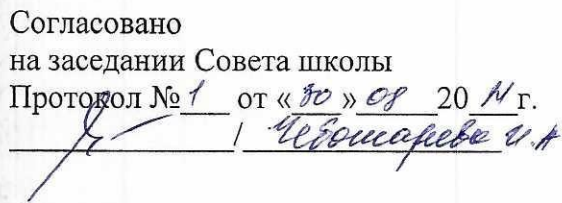 Согласовано
на заседании Совета школы
Протокол №1 от «30» 08 20 г.
/ Чебошарева И.А